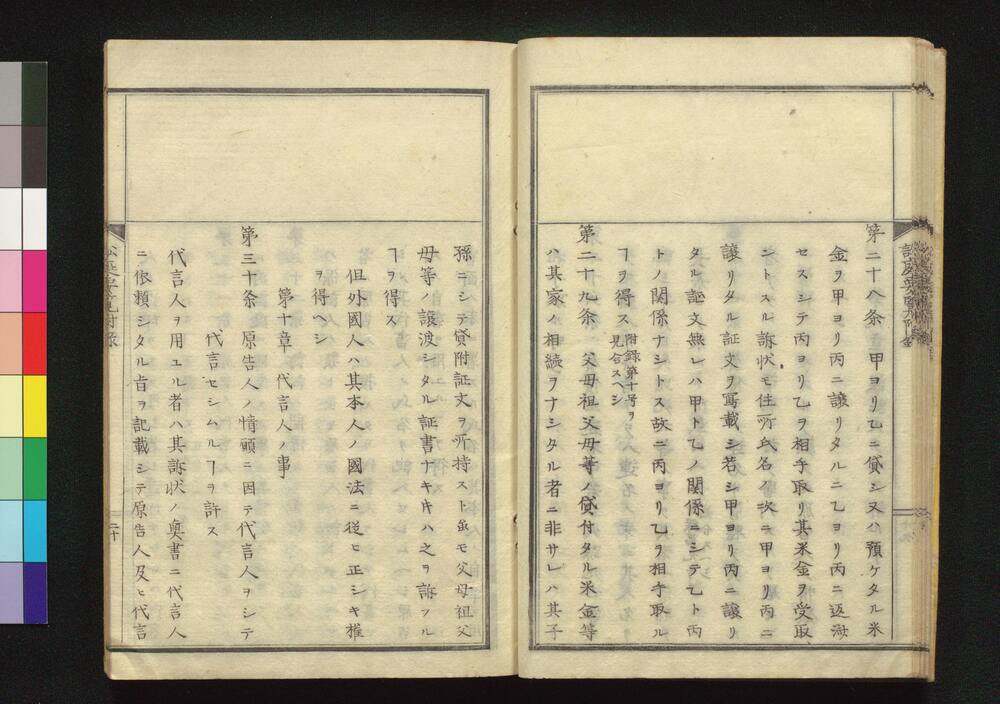 第二十八条　甲ヨリ乙ニ貸シ又ハ預ケタル米
金ヲ甲ヨリ丙ニ譲リタルニ乙ヨリ丙ニ返済
セスシテ丙ヨリ乙ヲ相手取リ其米金ヲ受取
ントスル訴状モ住所氏名ノ次ニ甲ヨリ丙ニ
譲リタル証文ヲ写載シ若シ甲ヨリ丙ニ譲リ
タル証文無レハ甲ト乙ノ関係ニシテ乙ト丙
トノ関係ナシトス故ニ丙ヨリ乙ヲ相手取ル
ヿヲ得ス 附録第十号ヲ
見合スヘシ
第二十九条　父母祖父母等ノ貸付タル米金等
ハ其家ノ相続ヲナシタル者ニ非サレハ其子
孫ニシテ貸附証文ヲ所持スト虽モ父母祖父
母等ノ譲渡シタル証書ナキ𪜈ハ之ヲ訴フル
ヿヲ得ス
但外國人ハ其本人ノ國法ニ従ヒ正シキ権
ヲ得ヘシ
第十章　代言人ノ事
第三十条　原告人ノ情願ニ因テ代言人ヲシテ
代言セシムルヿヲ許ス
代言人ヲ用ユル者ハ其訴状ノ奥書ニ代言人
ニ依頼シタル旨ヲ記載シテ原告人及ヒ代言
二十